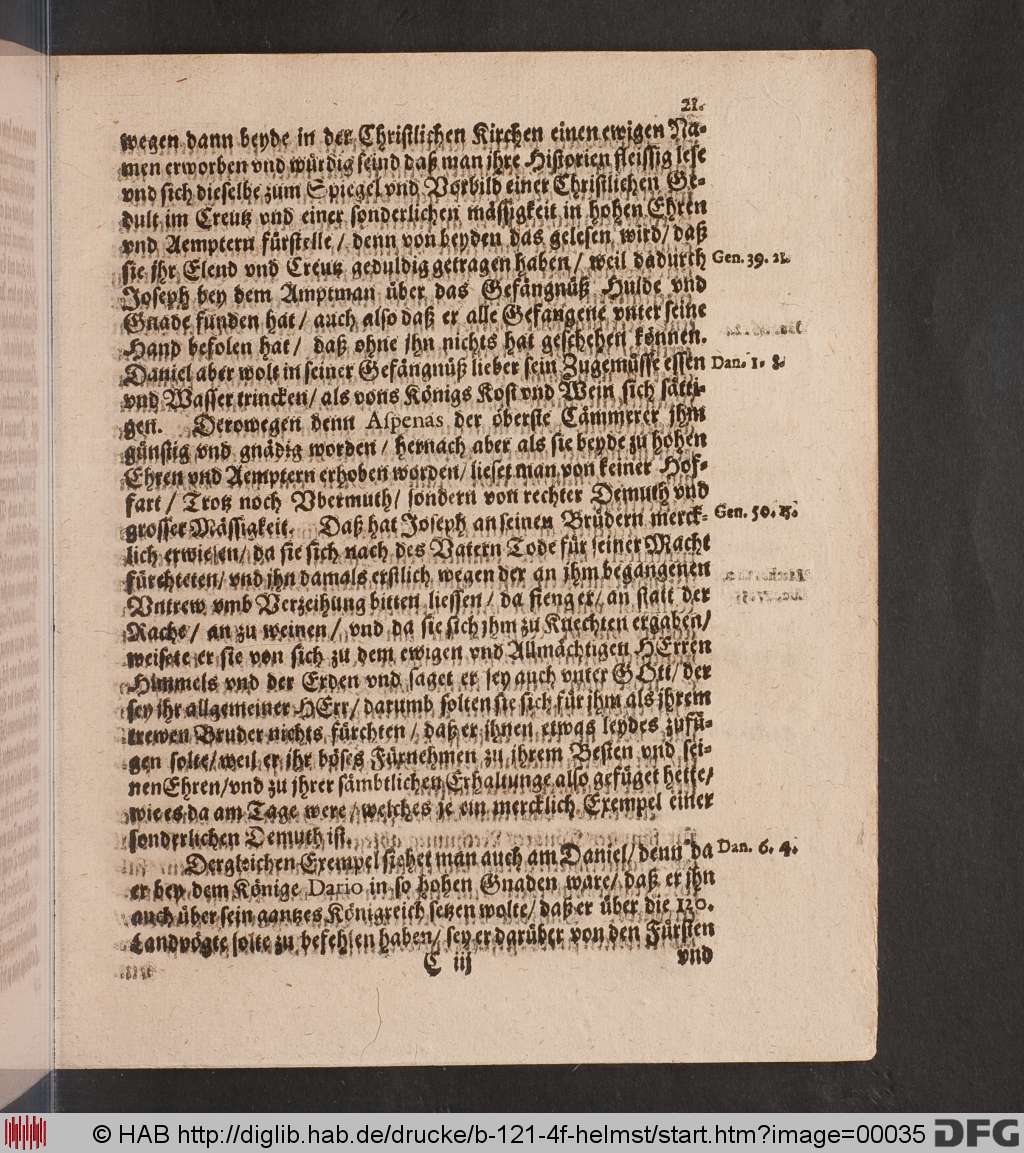 21.
wegen dann beyde in der Christlichen Kirchen einen ewigen Na-
men erworben vnd würdig seind daß man jhre Historien fleissig lese
vnd sich dieselbe zum Spiegel vnd Vorbild einer Christlichen Ge-
dult im Creutz vnd einer sonderlichen mässigkeit in hohen Ehren
vnd Aemptern fürstelle / denn von beyden das gelesen wird / daß
sie jhr Elend vnd Creutz geduldig getragen haben / weil dadurch Gen. 39. 21.
Joseph bey dem Amptman über das Gefängnüß Hulde vnd
Gnade funden hat / auch also daß er alle Gefangene vnter seine
Hand befolen hat / daß ohne jhn nichts hat geschehen können.
Daniel aber wolt in seiner Gefängnüß lieber sein Zugemüsse essen Dan. 1. 8.
vnd Wasser trincken / als vons Königs Kost vnd Wein sich sätti-
gen. Derowegen denn Aspenas der öberste Cämmerer jhm
günstig vnd gnädig worden / hernach aber als sie beyde zu hohen
Ehren vnd Aemptern erhoben worden / lieset man von keiner Hof-
fart / Trotz noch Vbermuth / sondern von rechter Demuth vnd
grosser Mässigkeit. Daß hat Joseph an seinen Brüdern merck- Gen. 50. 15.
lich erwiesen / da sie sich nach des Vatern Tode für seiner Macht
fürchteten / vnd jhn damals erstlich wegen der an jhm begangenen
Vntrew vmb Verzeihung bitten liessen / da fieng er / an statt der
Rache / an zu weinen / vnd da sie sich jhm zu Knechten ergaben /
weisete er sie von sich zu dem ewigen vnd Allmächtigen HErren
Himmels vnd der Erden vnd saget er sey auch vnter GOtt / der
sey jhr allgemeiner HErr / darumb solten sie sich für jhm als jhrem
trewen Bruder nichts fürchten / daß er jhnen etwas leydes zufü-
gen solte / weil er jhr böses Fürnehmen zu jhrem Besten vnd sei-
nen Ehren / vnd zu jhrer sämbtlichen Erhaltunge also gefüget hette /
wie es da am Tage were / welches je ein mercklich Exempel einer
sonderlichen Demuth ist.
Dergleichen Exempel siehet man auch am Daniel / denn da Dan. 6. 4.
er bey dem Könige Dario in so hohen Gnaden ware / daß er jhn
auch über sein gantzes Königreich setzen wolte / daß er über die 120.
Landvögte solte zu befehlen haben / sey er darüber von den Fürsten
C iij vnd
© HAB http://diglib.hab.de/drucke/b-121-4f-helmst/start.htm?image=00035 DFG